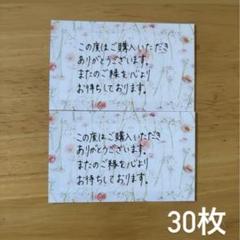 この度はご購入いただき
ありがとうございます。
またのご縁を心より
お待ちしております。
この度はご購入いただき
ありがとうございます。
またのご縁を心より
お待ちしております。
30枚